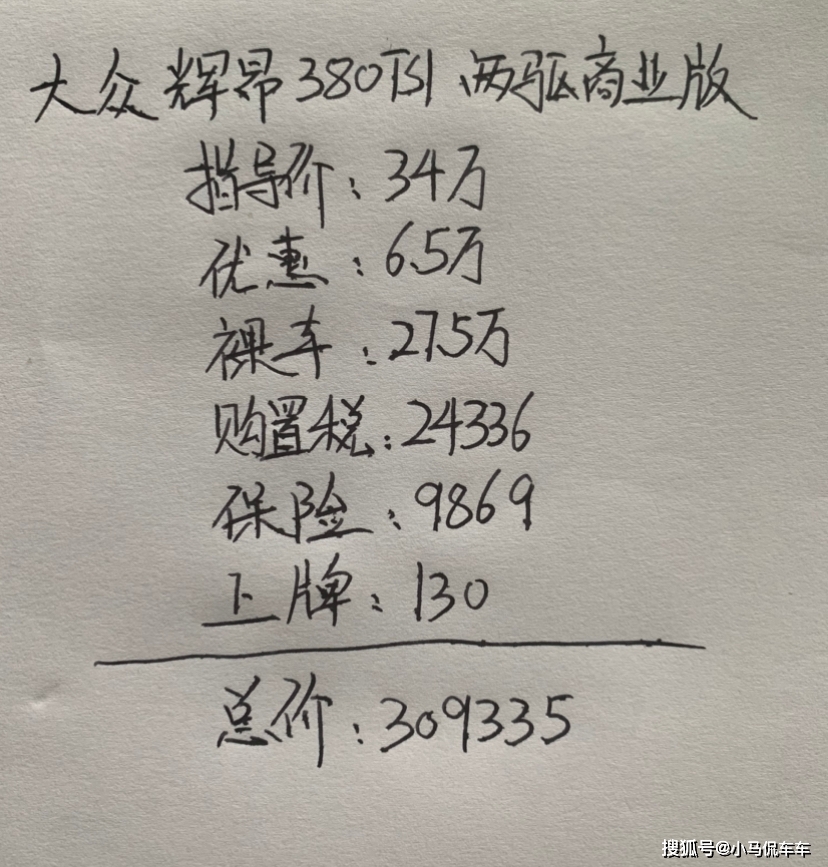 大众辉昂380TSI两驱商业版
指导价：34万
优惠：6.5万
裸车：27.5万
购置税：24336
保险：9869
上牌：130
总价：309335
搜狐号@小马侃车车